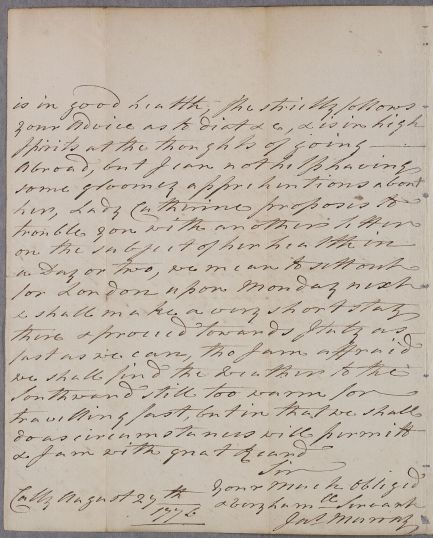 is in good health, she strictly follows
your Advice as to diat &c, & is in high
spirits at the thoughts of going
Abroad, but I can not help having
some gloomey apprihentions about
her, Lady Catherine proposes to
trouble you with another letter
on the subject of her health in
a Day or two, we mean to sett out
for London upon Monday next
& shall make a very short stay
there & proceed towards Italy as
fast as we can, tho I am affraid
we shall find the Weather to the
Southward still too warm for
travelling fast but in that we shall
do as circumstances will permitt
& I am with great Regard
Sir
your Much Obliged
& very hum.ble Servant
Jas Murray
Cally August 29th
1776